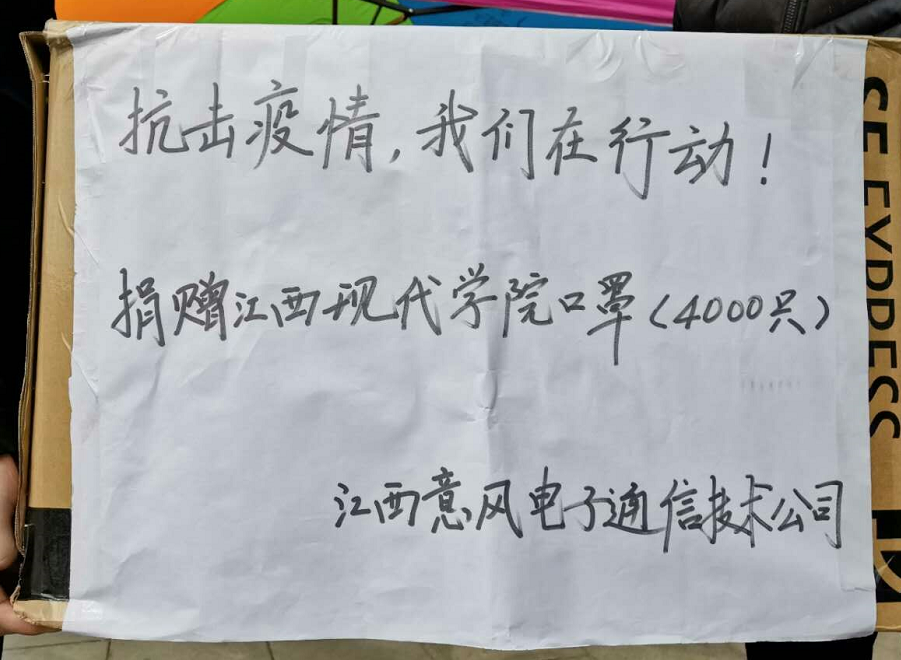 抗击疫情,我们在行动!
捐赠江西现代学院口罩(4000只)
江西意风电子通信技术公司
SF EXPRESS